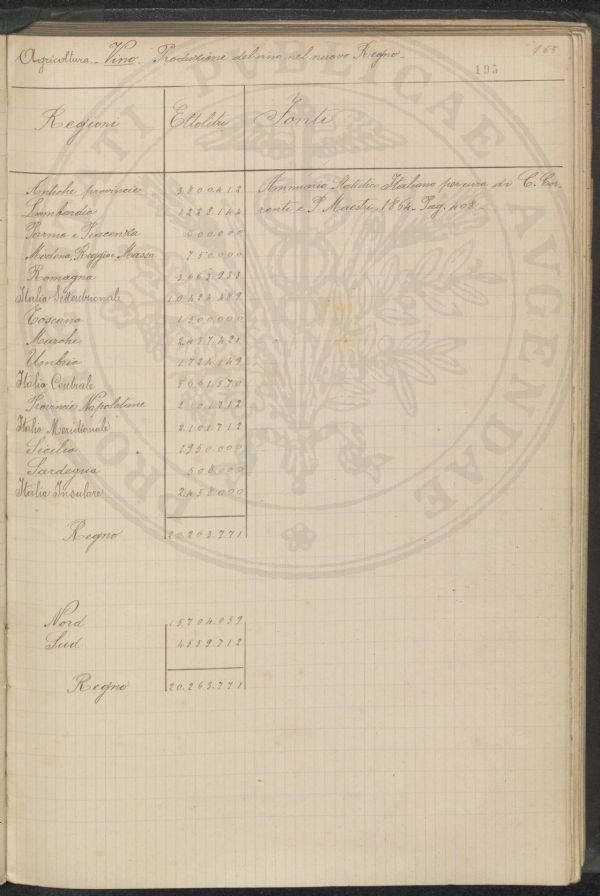 165
Agricoltura - Vino. Produzione del vino nel nuovo Regno -
195
Regioni Ettolitri Fonti
Antiche provincie 3.800.412 Annuario Statistico Italiano per cura di C. Cor-
Lombardia 1.228.144 renti e P. Maestri. 1864 - Pag. 408 -
Parma e Piacenza 600.000
Modena, Reggio e Massa 750.000
Romagna 3.663.933
Italia Settentrionale 10.042.489
Toscana 1.500.000
Marche 2.437.421
Umbria 1.724.149
Italia Centrale 5.661.570
Provincie Napoletane 2.101.712
Italia Meridionale 2.101.712
Sicilia 1.950.000
Sardegna 508.000
Italia Insulare 2.458.000
Regno 20.263.771
Nord 15.704.059
Sud 4.559.712
Regno 20.263.771
PUBLICAE
AUGENDAE
PRO